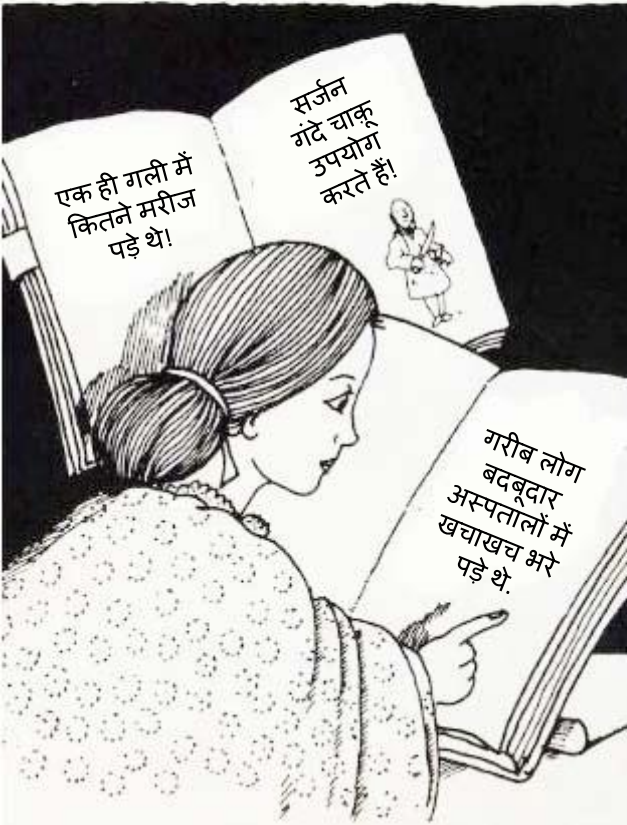 एक ही गली में
कितने मरीज
पड़े थे!
सर्जन
गंदे चाक़ू
उपयोग
करते हैं!
गरीब लोग
बदबूदार
अस्पतालों में
खचाखच भरे
पड़े थे.